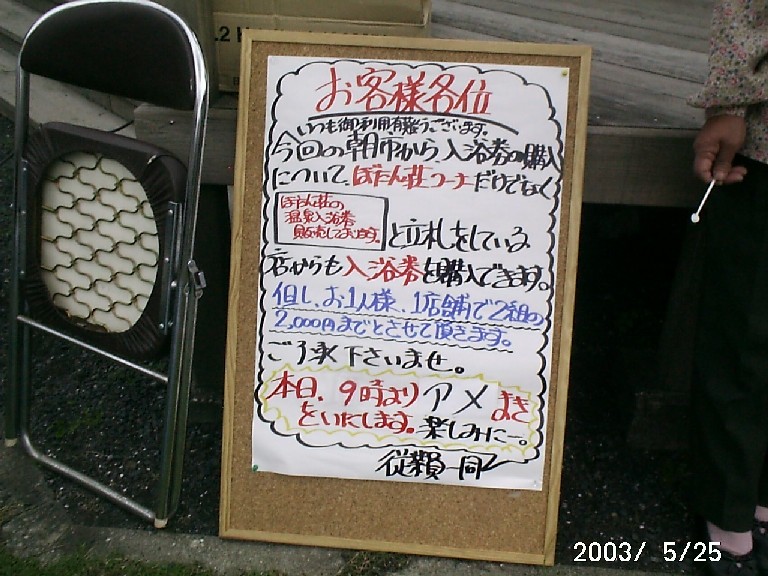 .2
お客様各位
いつも御利用有難うございます。
今回の朝市から入浴券の購入
について、ぼたん荘コーナーだけでなく
ぼたん荘の
温泉入浴券
販売しております。
と立札をしている
店からも入浴券を購入できます。
但し、お1人様、1店舗で2組の
2,000円までとさせて頂きます。
ご了承下さいませ。
本日、9時よりアメまき
をいたします。楽しみにー。
従業員一同
2003/ 5/25